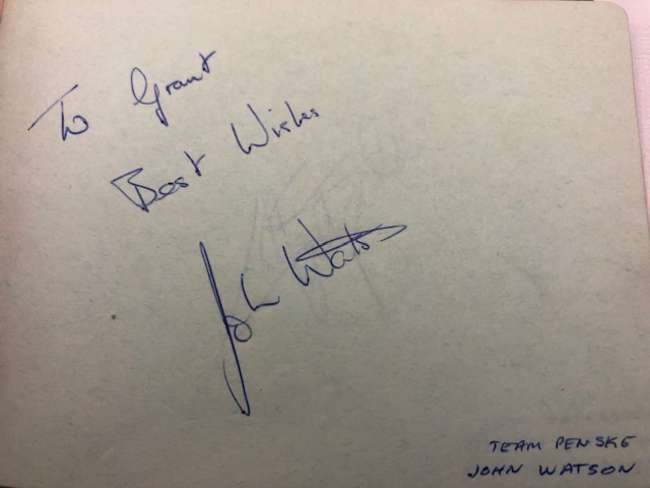 To Grant
Best Wishes
John Watson
TEAM PENSKE
JOHN WATSON